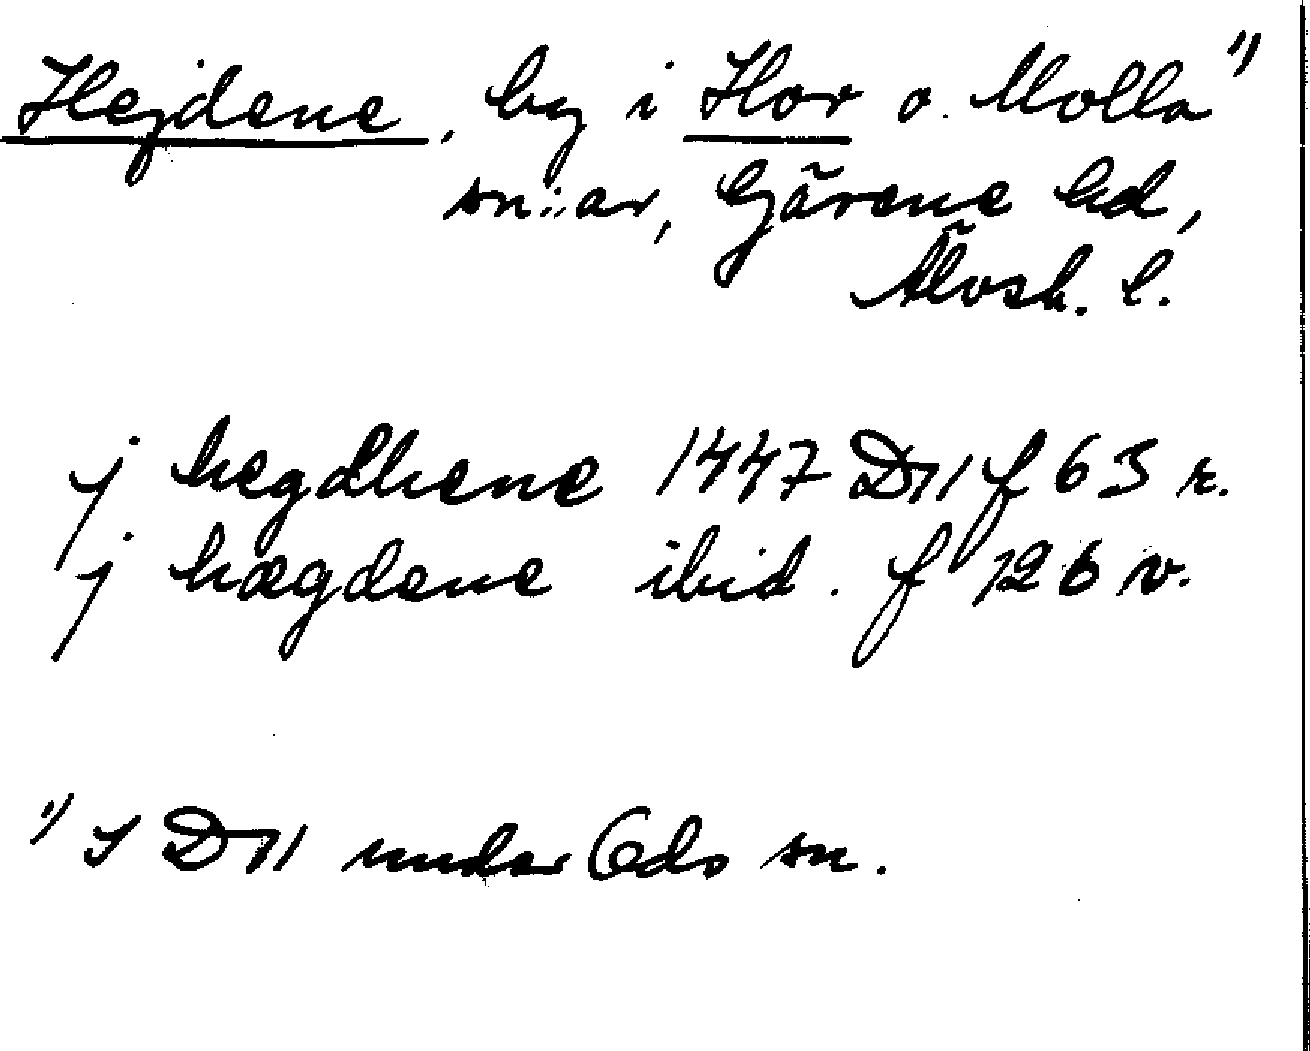 Hejdene, by i Hov o. Molla 1)
sn:ar, Gäsene hd,
Älvsb. l.
j hegdhene 1447 D 11 f 63 r.
j hægdene ibid. f 126 v.
1) I D 11 under Öds sn.